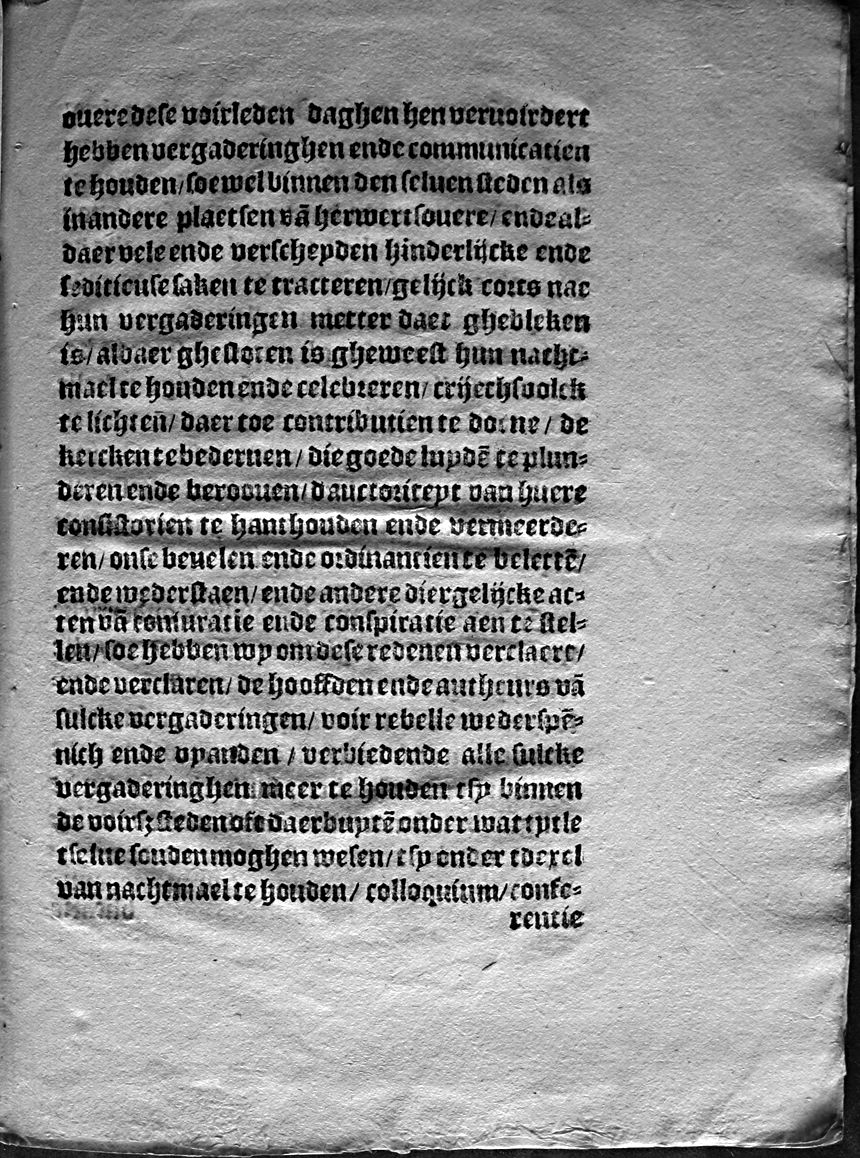 ouere dese voirleden daghen hen veruoirdert
hebben vergaderinghen ende communicatien
te houden/ soe wel binnen den seluen steden als
in andere plaetsen vã herwertsouere/ ende al⸗
daer vele ende verscheyden hinderlijcke ende
seditieuse saken te tracteren/ gelijck corts nae
hun vergaderingen metter daet ghebleken
is/ aldaer ghesloten is gheweest hun nacht⸗
mael te houden ende celebreren/ crijechsvolck
te lichteñ/ daer toe contributien te doene/ de
kercken te bederuen/ die goede luydẽ te plun⸗
deren ende beroouen/ dauctoriteyt van huere
consistorien te hanthouden ende vermeerde⸗
ren/ onse beuelen ende ordinancien te belettẽ/
ende wederstaen/ ende andere diergelijcke ac⸗
ten vã coniuratie ende conspiratie aen te stel⸗
len/ soe hebben wy om dese redenen verclaert/
ende verclaren/ de hooffden ende autheurs vã
sulcke vergaderingen/ voir rebelle wederspẽ⸗
nich ende vyanden/ verbiedende alle sulcke
vergaderinghen meer te houden tsy binnen
de voirsz steden oft daer buytẽ onder wat tytle
tselue souden moghen wesen/ tsy onder tdexel
van nachtmael te houden/ colloquium/ confe⸗
rentie